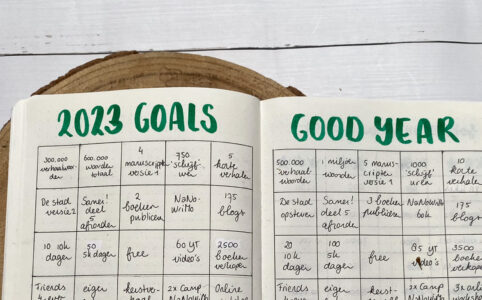 2023 GOALS
300.000
verhaalwoor-
den
600.000
woorden
totaal
4
manuscripten
versie 1
750
'schrijf'
uren
5
korte
verhalen
De stad
versie 2
Samen!
deel 5
afronden
2
boeken
publiceren
NaNo-
WriMo
175
blogs
10 10k
dagen
50
5k dagen
free
60 YT
video's
2500
boeken
verkopen
Friends
eigen
2x Camp
NaNoWriMo
Online
GOOD YEAR
500.000
verhaal
woorden
1 miljoen
woorden
5 manus-
cripten
versie 1
1000
schrijf
uren
10
korte
verhalen
De stad
opsturen
Samen!
deel 5
afronden
3 boeken
publiceren
NaNoWriMo
60k
175
blogs
20
10k
dagen
100
5k
dagen
free
85 yt
video's
3500
boeken
verkopen
Friends
eigen
2x Camp